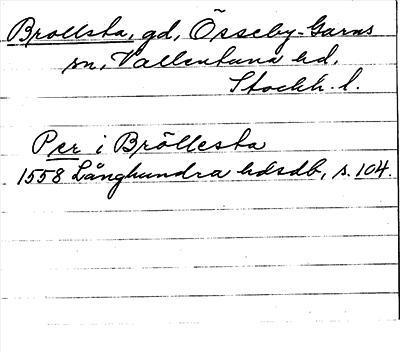 Brollsta, gd, Össeby-Garns
sn, Vallentuna hd,
Stockh. l.
Per i Bröllesta
1558 Långhundra hdsdb, s. 104.